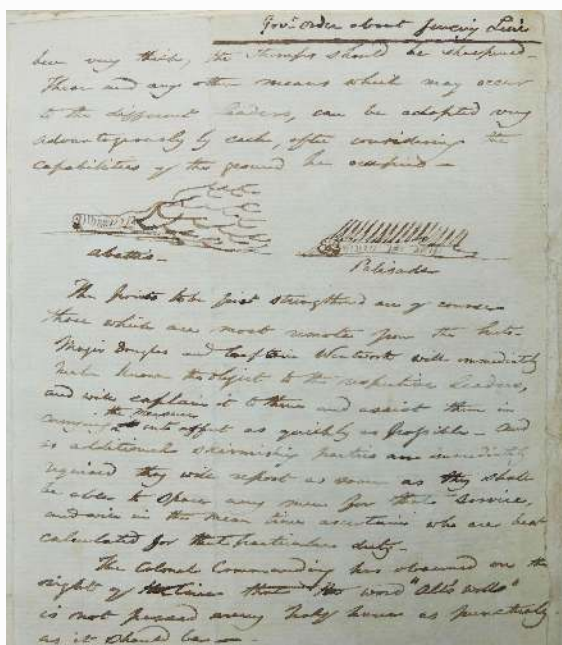 Gov.r Order about Fencing Line
been very thick, the Stumps should be sharpened —
These and any other means which may occur
to the different Leaders, can be adopted very
advantageously by each, after considering the
capabilities of the ground he occupied —
abattis —
Palisades
The Points to be first strengthened are of course
those which are most remote from the huts.
Major Douglas and Captain Wentworth will immediately
make known the object to the respective Leaders,
and will explain it to them and assist them in
the measure
carrying into effect as quickly as possible — And
as additional skirmishing parties are immediately
required they will report as soon as they shall
be able to spare any men for that service,
and will in the mean time ascertain who are best
calculated for that particular duty —
The Colonel Commanding has observed on the
right of the lines that the word "All's Well"
is not passed every half hour as punctually
as it should be —